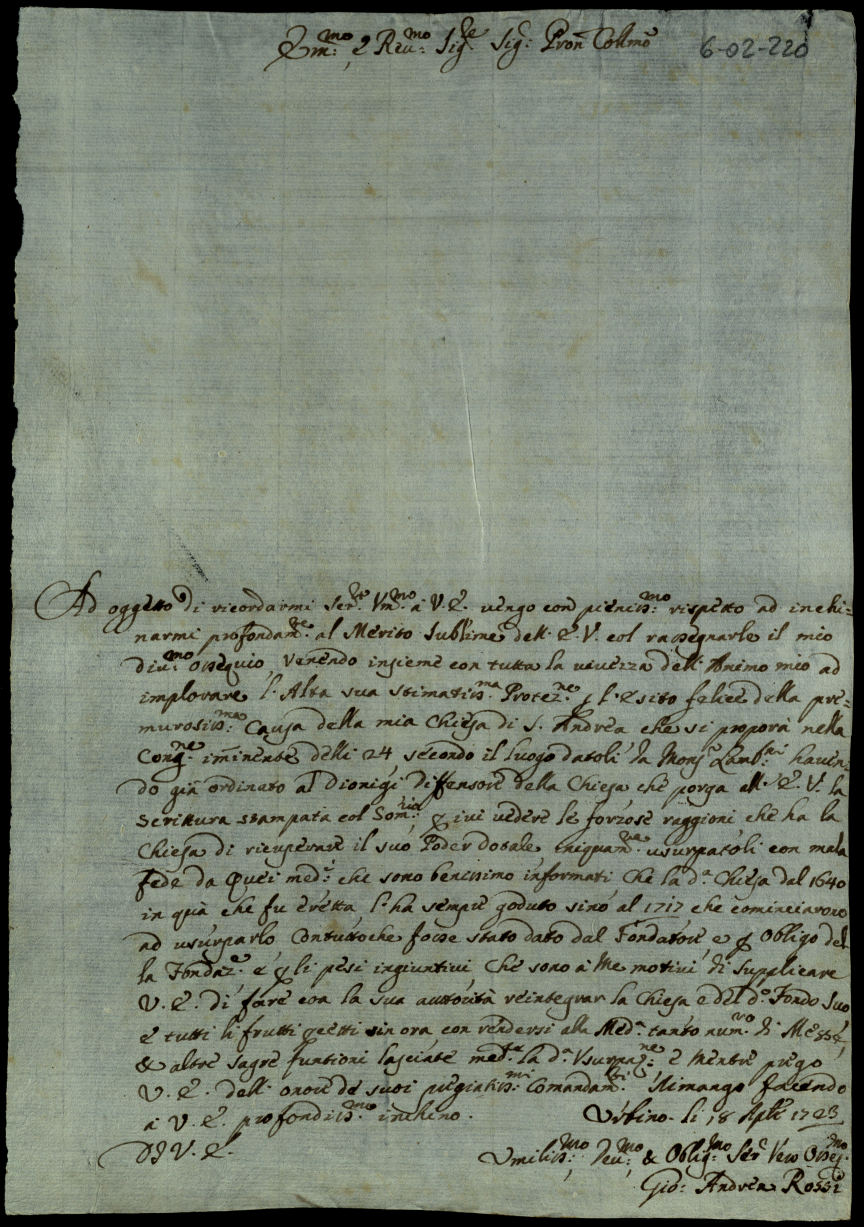 Em.mo e Rev.mo Sig.re Sig.r Pron Collmo
6-02-220
Ad oggetto di ricordarmi Ser.re Vm.mo a V. E. vengo con pieniss.mo rispetto ad inchi=
narmi profondam.te al Merito Sublime dell' E. V. col rassegnarle il mio
div.mo ossequio, Venendo insieme con tutta la vivezza dell' Animo mio ad
implorare l' Alta sua stimatiss.ma Protez.ne p l' esito felice della pre=
murosiss.ma Causa della mia Chiesa di S. Andrea che si proporà nella
Cong.ne imminente delli 24 secondo il luogo datoli da Mons.r Lamb.ni haven=
do già ordinato al Dionigi diffensore della Chiesa che porga all' E. V. la
Scrittura stampata col Som.rio p ivi vedere le forzose raggioni che ha la
Chiesa di ricuperare il suo Poder dotale iniquam.te usurpatoli con mala
fede da Quei med.i che sono benissimo informati Che la d.a Chiesa dal 1640
in quà che fu eretta l' ha sempre goduto sino al 1717 che cominciarono
ad usurparlo Contuttoche fosse stato dato dal Fondatore e p Obligo del
la Fondaz.e e p li pesi ingiuntivi Che sono à Me motivi di Supplicare
V. E. di fare con la sua auttorità reintegrar la Chiesa e del d.o Fondo Suo
e tutti li frutti sin ora, con rendersi alla Med.a tanto num.ro di Messe,
& altre sagre funtioni lasciate la d.a Usurpaz.ne e Mentre prego
V. E. dell' onore de suoi pregiatiss.mi Comandam.ti Rimango facendo
à V. E. profondiss.mo inchino.
Urbino li 18 Aple 1723
Di V. E.
Umiliss.mo Dev.mo & Oblig.mo Ser.r Vero Osseq.mo
Gio: Andrea Rossi